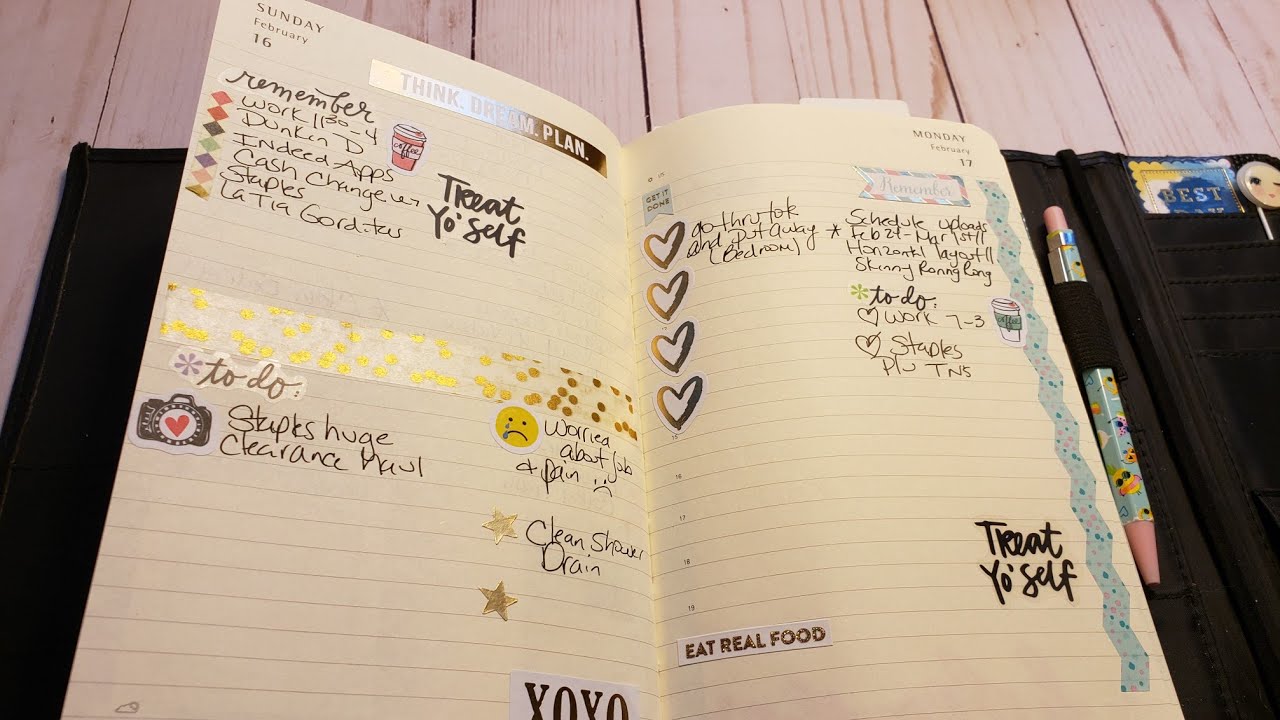 SUNDAY
February
16
THINK. DREAM. PLAN.
remember
Work 1130-4
Dunkin D
Indeed Apps
Cash Change
Staples
La Tia Gorditas
coffee
Treat
Yo' Self
to do:
Staples huge
Clearance Haul
Worried
about job
& pain
Clean Shower
Drain
XOXO
MONDAY
February
17
GET IT
DONE
go thru
and put away
(Bedroom)
Remember
* Schedule uploads
Feb - Mar 1st
Horizontal layout
Skinny
to do:
Work 7-3
coffee
Staples
P/U
15
16
17
18
19
Treat
Yo' Self
EAT REAL FOOD
BEST
DAY